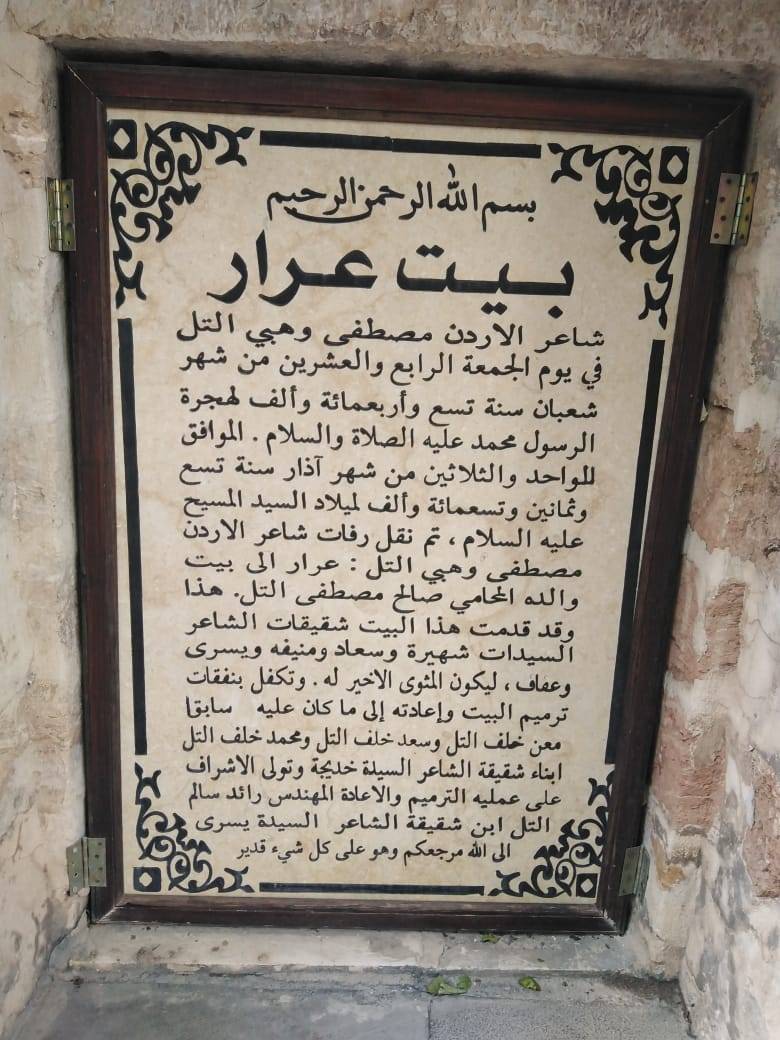 بسم الله الرحمن الرحيم
بيت عرار
شاعر الاردن مصطفى وهبي التل
في يوم الجمعة الرابع والعشرين من شهر
شعبان سنة تسع وأربعمائة وألف لهجرة
الرسول محمد عليه الصلاة والسلام . الموافق
للواحد والثلاثين من شهر آذار سنة تسع
وثمانين وتسعمائة وألف لميلاد السيد المسيح
عليه السلام ، تم نقل رفات شاعر الاردن
مصطفى وهبي التل : عرار الى بيت
والده المحامي صالح مصطفى التل. هذا
وقد قدمت هذا البيت شقيقات الشاعر
السيدات شهيرة وسعاد ومنيفه ويسرى
وعفاف ، ليكون المثوى الاخير له . وتكفل بنفقات
ترميم البيت وإعادته إلى ما كان عليه سابقا
معن خلف التل وسعد خلف التل ومحمد خلف التل
ابناء شقيقة الشاعر السيدة خديجة وتولى الاشراف
على عمليه الترميم والاعادة المهندس رائد سالم
التل ابن شقيقة الشاعر السيدة يسرى
الى الله مرجعكم وهو على كل شيء قدير